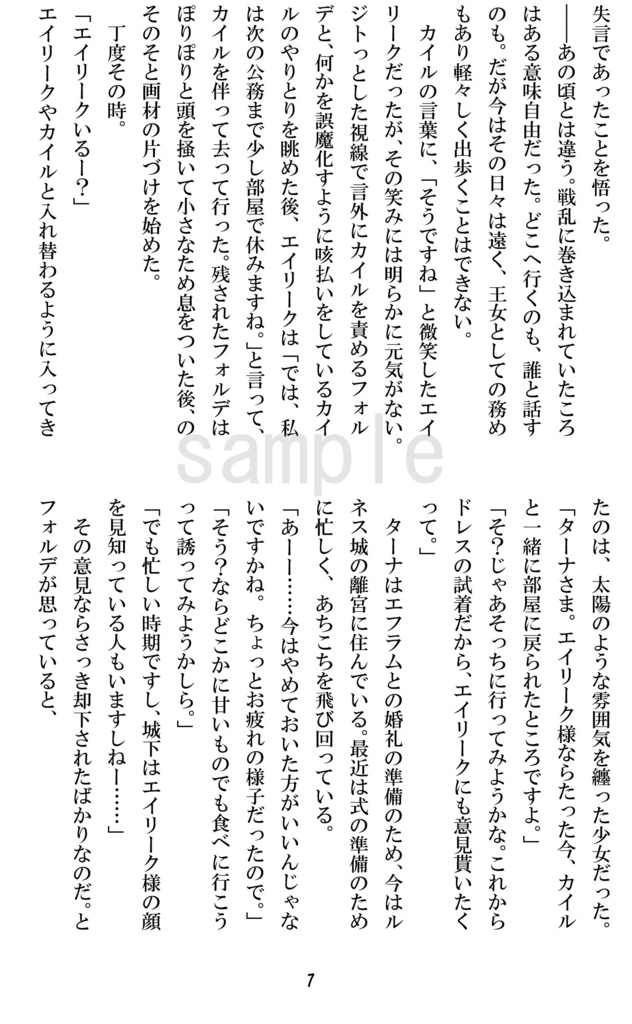 失言であったことを悟った。
――あの頃とは違う。戦乱に巻き込まれていたころ
はある意味自由だった。どこへ行くのも、誰と話す
のも。だが今はその日々は遠く、王女としての務め
もあり軽々しく出歩くことはできない。
　カイルの言葉に、「そうですね」と微笑したエイ
リークだったが、その笑みには明らかに元気がない。
ジトっとした視線で言外にカイルを責めるフォル
デと、何かを誤魔化すように咳払いをしているカイ
ルのやりとりを眺めた後、エイリークは「では、私
は次の公務まで少し部屋で休みますね。」と言って、
カイルを伴って去って行った。残されたフォルデは
ぽりぽりと頭を掻いて小さなため息をついた後、の
そのそと画材の片づけを始めた。
　丁度その時。
「エイリークいるー？」
エイリークやカイルと入れ替わるように入ってき
たのは、太陽のような雰囲気を纏った少女だった。
「ターナさま。エイリーク様ならたった今、カイル
と一緒に部屋に戻られたところですよ。」
「そ？じゃあそっちに行ってみようかな。これから
ドレスの試着だから、エイリークにも意見貰いたく
って。」
　ターナはエフラムとの婚礼の準備のため、今はル
ネス城の離宮に住んでいる。最近は式の準備のため
に忙しく、あちこちを飛び回っている。
「あーー……今はやめておいた方がいいんじゃな
いですかね。ちょっとお疲れの様子だったので。」
「そう？ならどこかに甘いものでも食べに行こう
って誘ってみようかしら。」
「でも忙しい時期ですし、城下はエイリーク様の顔
を見知っている人もいますしねー……」
　その意見ならさっき却下されたばかりなのだ。と
フォルデが思っていると、
sample
7